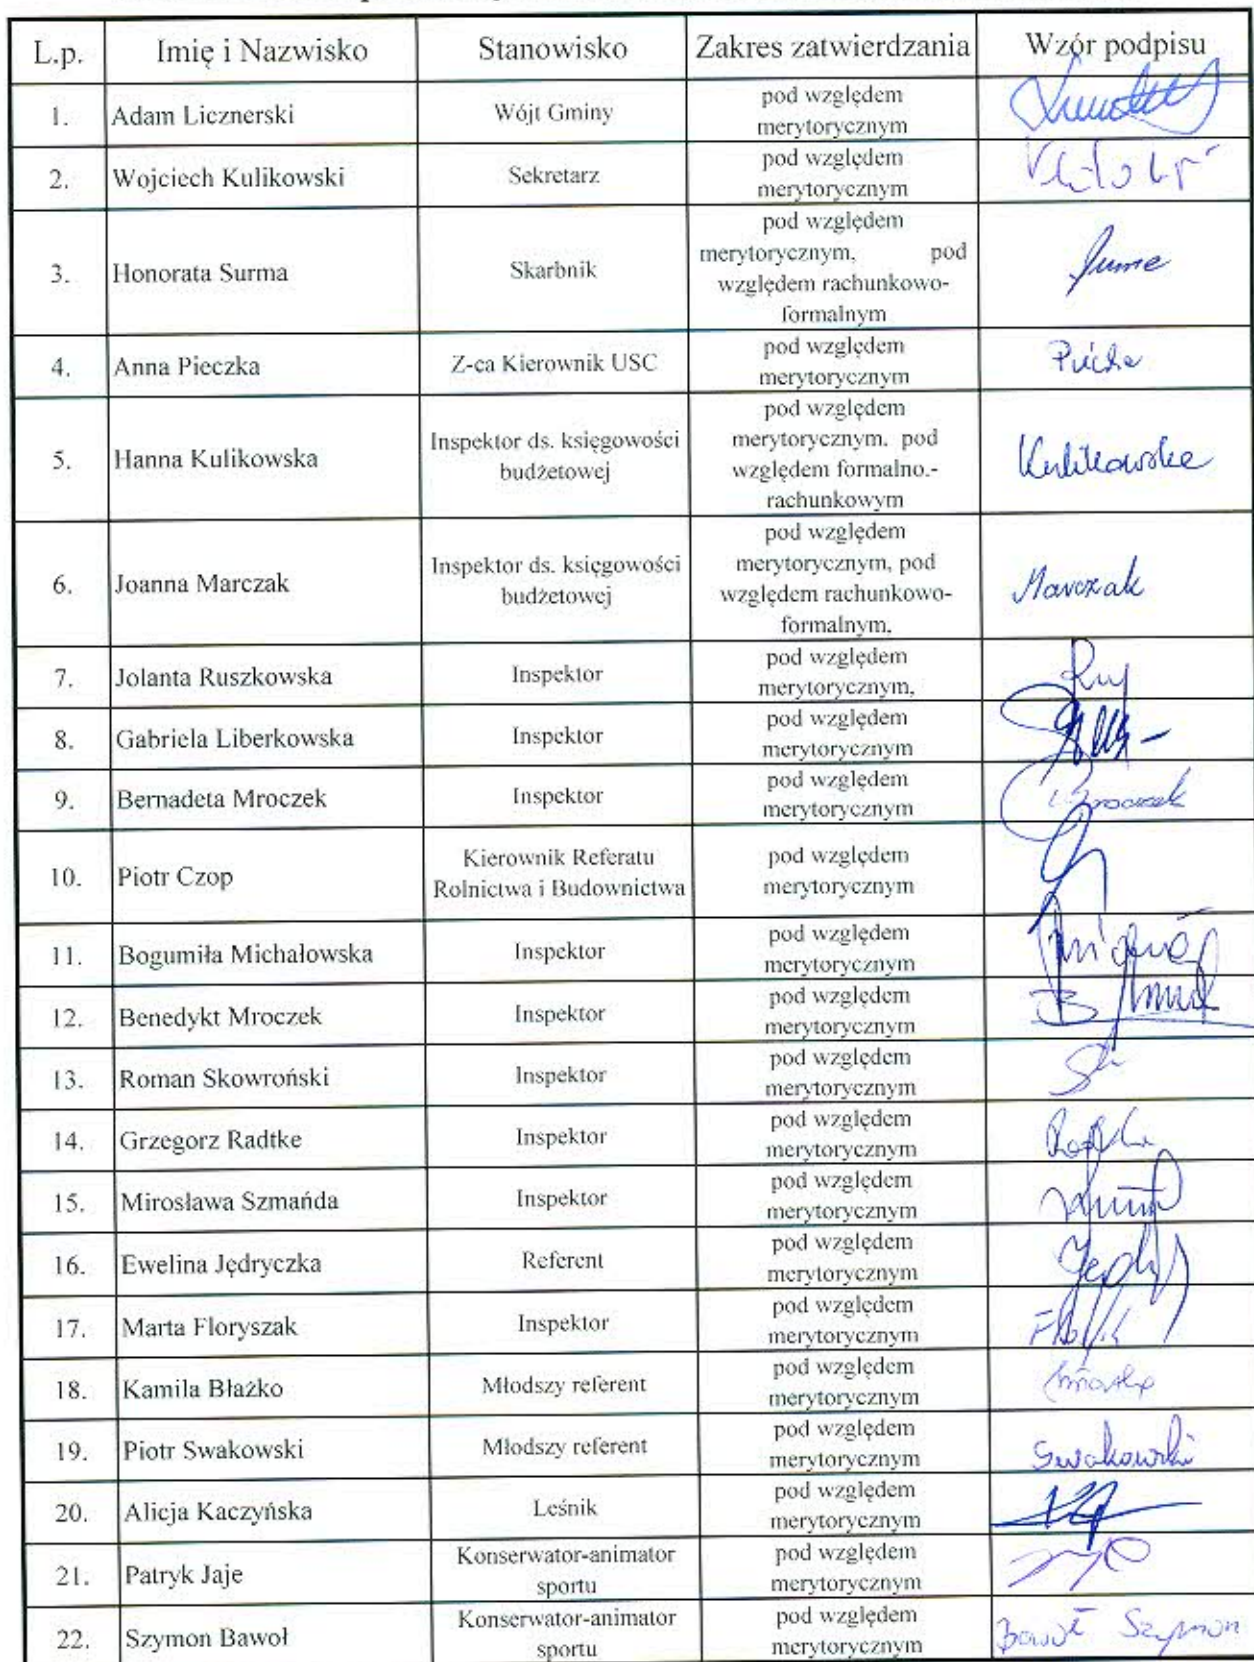 L.p. Imię i Nazwisko Stanowisko Zakres zatwierdzania Wzór podpisu
1. Adam Licznerski Wójt Gminy pod względem
merytorycznym
2. Wojciech Kulikowski Sekretarz pod względem
merytorycznym
3. Honorata Surma Skarbnik pod względem
merytorycznym, pod
względem rachunkowo-
formalnym
4. Anna Pieczka Z-ca Kierownik USC pod względem
merytorycznym
5. Hanna Kulikowska Inspektor ds. księgowości
budżetowej pod względem
merytorycznym. pod
względem formalno.-
rachunkowym Kulikowska
6. Joanna Marczak Inspektor ds. księgowości
budżetowej pod względem
merytorycznym, pod
względem rachunkowo-
formalnym, Marczak
7. Jolanta Ruszkowska Inspektor pod względem
merytorycznym,
8. Gabriela Liberkowska Inspektor pod względem
merytorycznym
9. Bernadeta Mroczek Inspektor pod względem
merytorycznym Mroczek
10. Piotr Czop Kierownik Referatu
Rolnictwa i Budownictwa pod względem
merytorycznym
11. Bogumiła Michałowska Inspektor pod względem
merytorycznym
12. Benedykt Mroczek Inspektor pod względem
merytorycznym
13. Roman Skowroński Inspektor pod względem
merytorycznym
14. Grzegorz Radtke Inspektor pod względem
merytorycznym
15. Mirosława Szmańda Inspektor pod względem
merytorycznym
16. Ewelina Jędryczka Referent pod względem
merytorycznym
17. Marta Floryszak Inspektor pod względem
merytorycznym
18. Kamila Błażko Młodszy referent pod względem
merytorycznym
19. Piotr Swakowski Młodszy referent pod względem
merytorycznym Swakowski
20. Alicja Kaczyńska Leśnik pod względem
merytorycznym
21. Patryk Jaje Konserwator-animator
sportu pod względem
merytorycznym
22. Szymon Bawoł Konserwator-animator
sportu pod względem
merytorycznym Bawoł Szymon